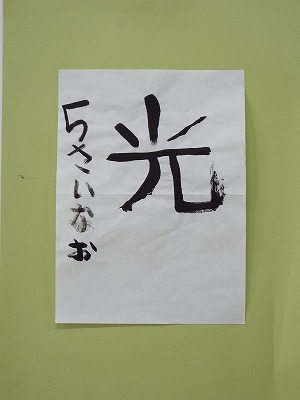 光
5さいなお